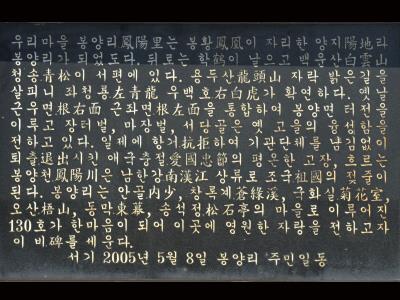 우리마을 봉양리鳳陽里는 봉황鳳凰이 자리한 양지陽地라
봉양리가 되었도다. 뒤로는 학鶴이 날으고 백운산白雲山
청송靑松이 서편에 있다. 용두산龍頭山 자락 밝은길을
살피니 좌청룡左靑龍 우백호右白虎가 확연하다. 옛날
근우면根右面 근좌면根左面을 통합하여 봉양면 터전을
이루고 장터벌, 마장벌, 서당골은 옛 고을의 융성함을
전하고 있다. 일제에 항거抗拒하여 기관단체를 남김없이
퇴출退出시킨 애국충절愛國忠節의 평온한 고장, 흐르는
봉양천鳳陽川은 남한강南漢江 상류로 조국祖國의 젖줄이
된다. 봉양리는 안골內沙, 창록계蒼綠溪, 국화실菊花室,
오산梧山, 동막東幕, 송석정松石亭의 마을로 이루어진
130호가 한마음이 되어 이곳에 영원한 자랑을 전하고자
이 비碑를 세운다.
서기 2005년 5월 8일 봉양리 주민일동